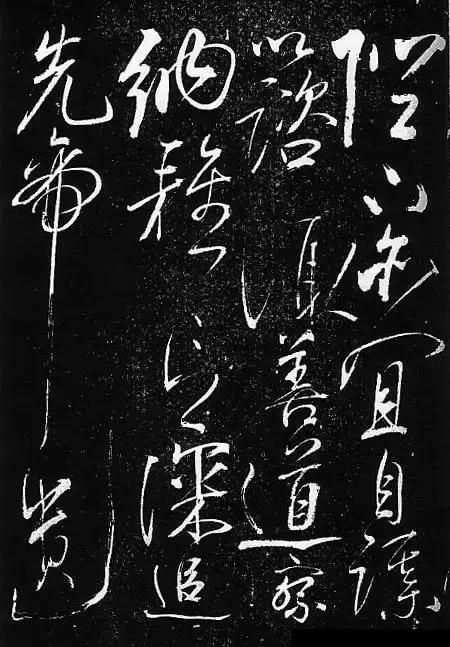 陛下亦宜自謀
以諮諏善道察
納雅言深追
先帝遺